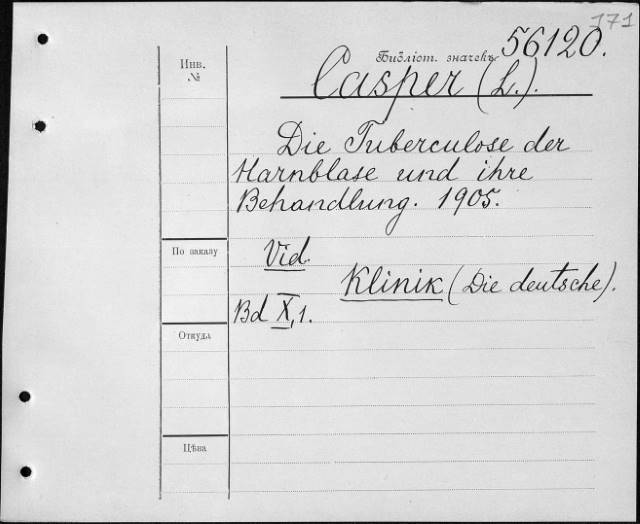 171
Библіот. значекъ 56120.
Инв.
№
Casper (L.).
Die Tuberculose der
Harnblase und ihre
Behandlung. 1905.
По заказу
Vid.
Klinik (Die deutsche).
Bd X, 1.
Откуда
Цѣна